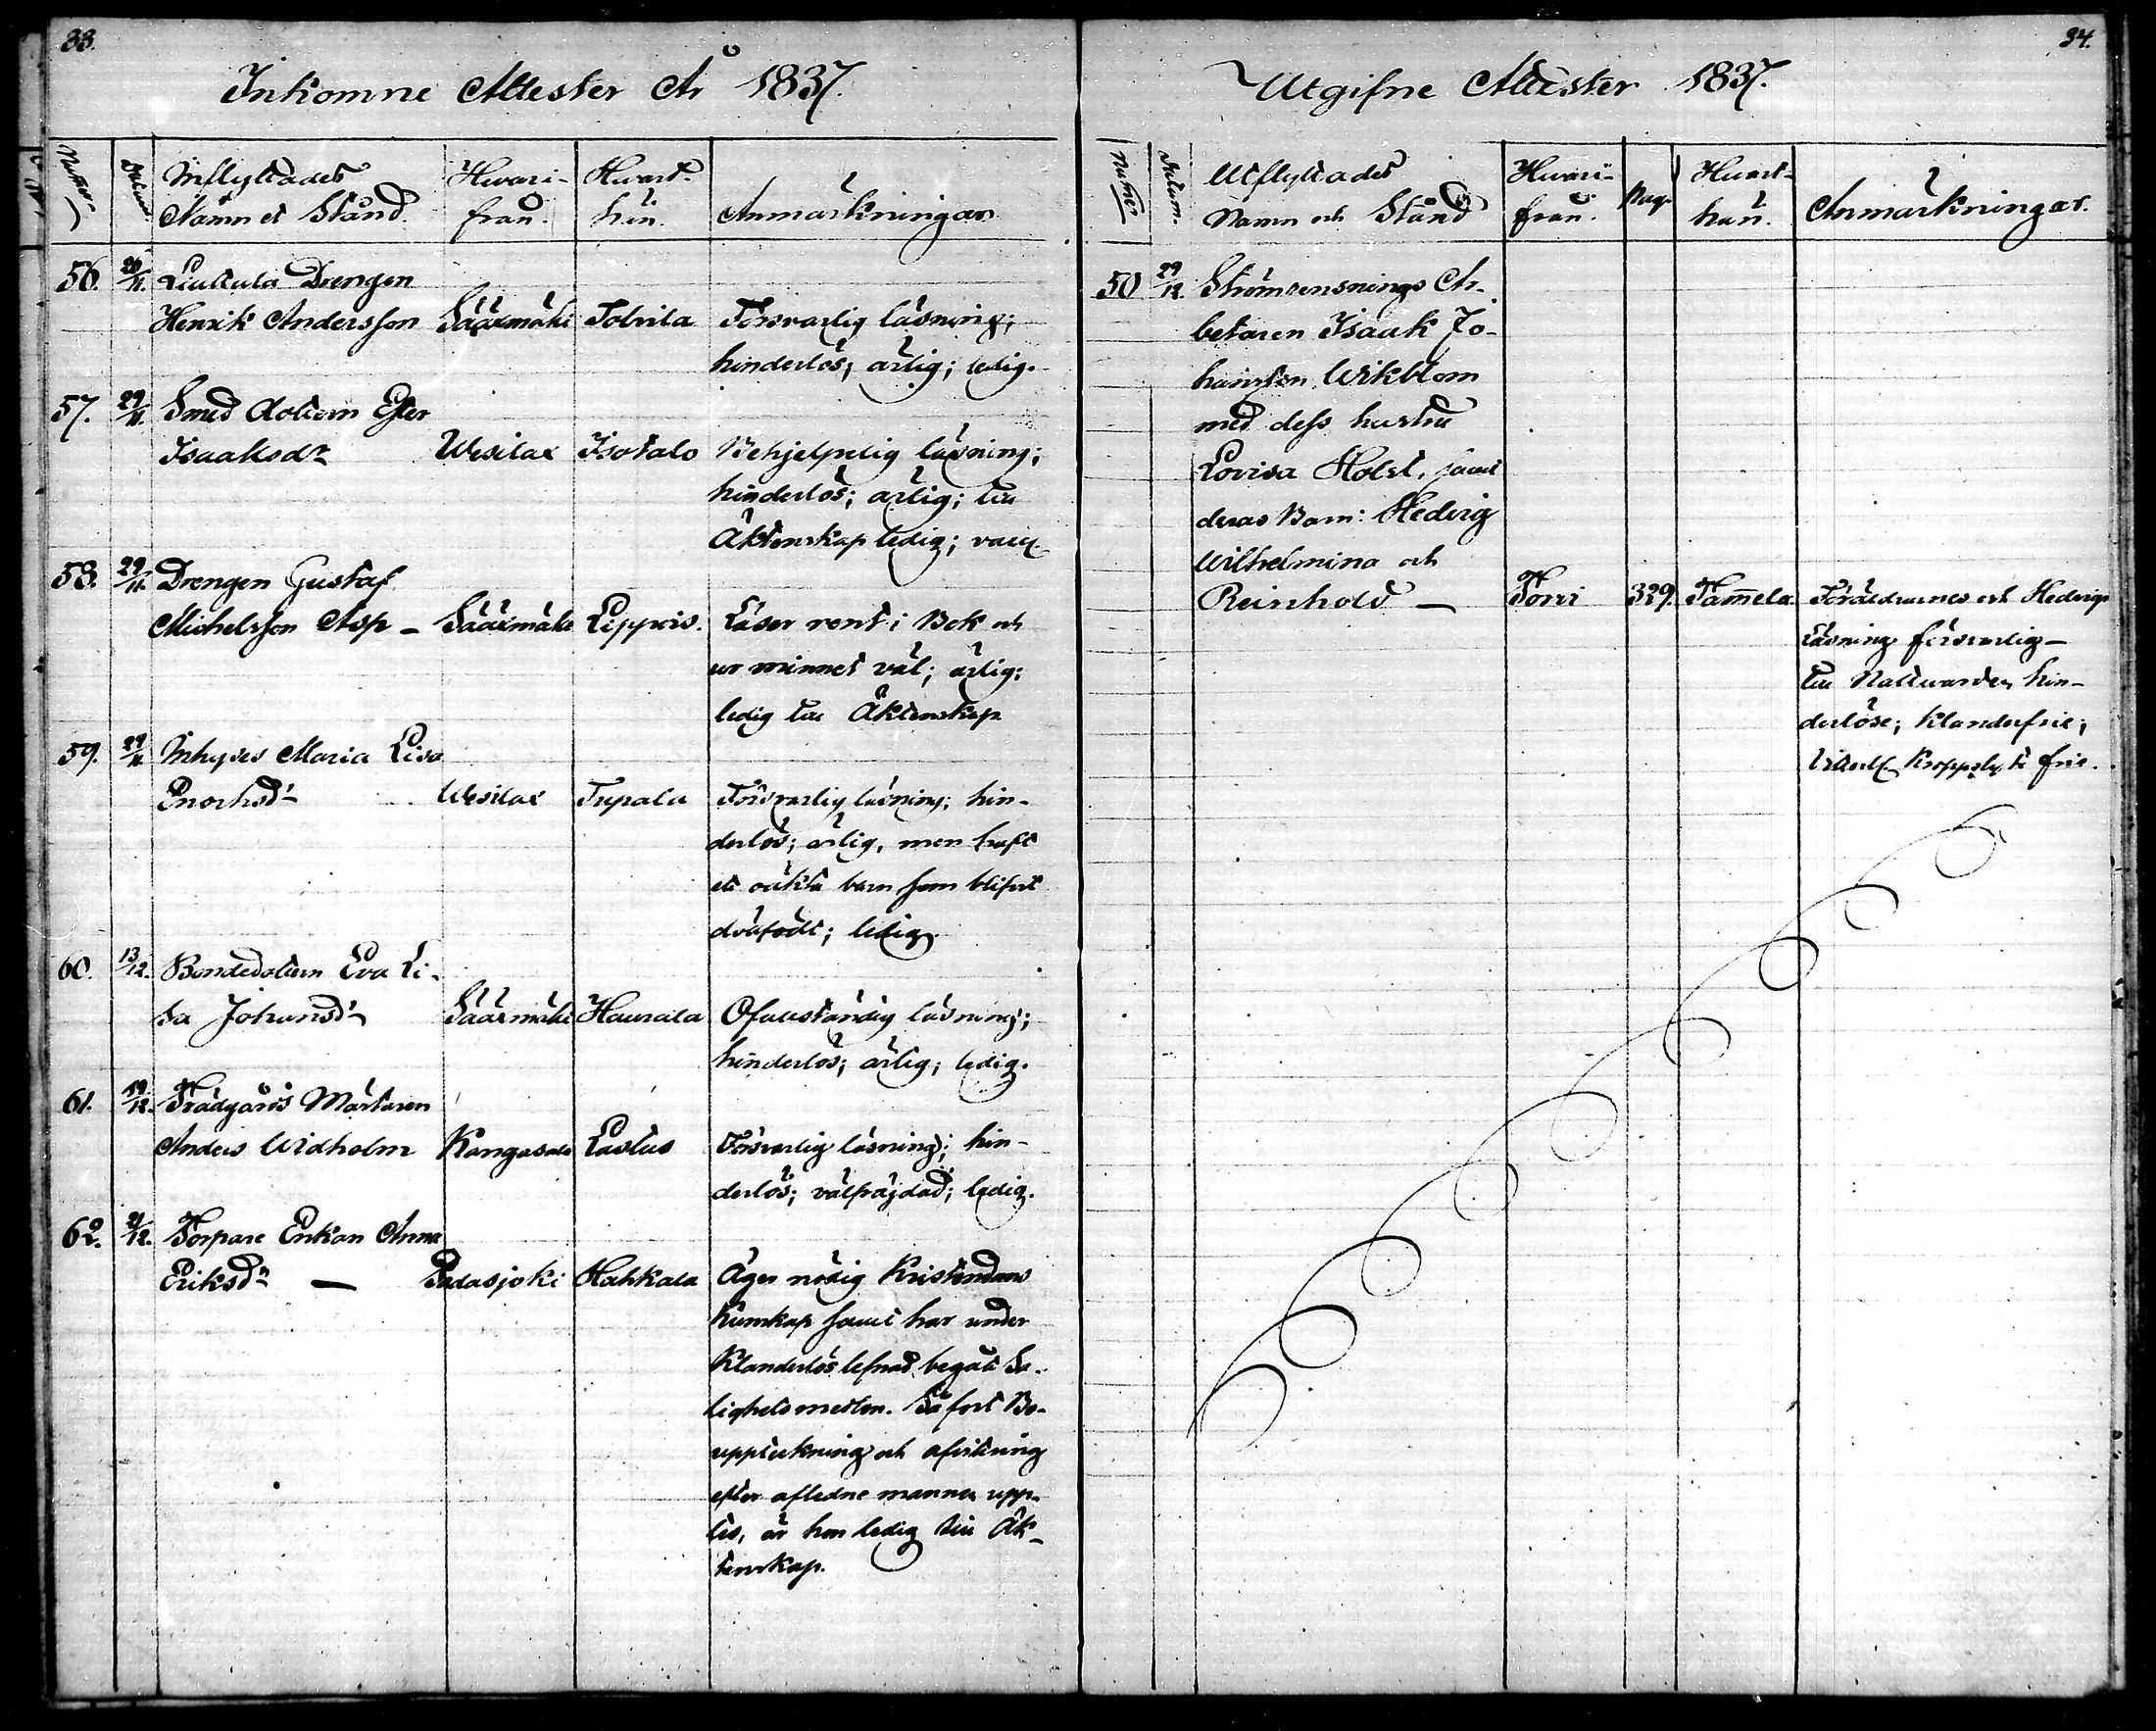 33.
Inkomne Attester År 1837.
Numer
Datum
Inflyttades
Namn et Stånd.
Hvari-
från.
Hvart-
hän.
Anmärkningar
56. 26/11. Drengen
Henrik Andersson Sääxmäki Tolvila Försvarlig läsning;
hinderlös; ärlig; ledig.
57. 29/11. Smed dottern Ester
Isaaksdr Wesilax Isotalo Behjelpelig läsning;
hinderlös; ärlig; till
Äktenskap ledig; vacc.
58. 29/11. Drengen Gustaf
Michelsson Asp - Sääxmäki Lippois. Läser rent i Bok och
ur minnet väl; ärlig;
ledig till Äktenskap
59. 29/11 Inhyses Maria Lisa
Enochsdr Wesilax Tupala Försvarlig läsning; hin-
derlös; ärlig, men haft
ett oäkta barn som blifvit
dödfödt; ledig
60. 13/12. Bondedottern Eva Li-
sa Johansdr Sääxmäki Haurala Ofullständig läsning;
hinderlös; ärlig; ledig.
61. 19/12. Trädgårds Mästaren
Anders Widholm Kangasala Laslus Försvarlig läsning; hin-
derlös; välfräjdad; ledig.
62. 21/12. Torpare Enkan Anna
Eriksdr — Padasjoki Hahkala Äger nödig Kristendoms
kunskap samt har under
Klanderlös lefnad begått Sa-
lighetsmedlen. Så fort Bo-
uppteckning och afvittring
efter aflidne mannen upp-
tes, är hon ledig till Äk-
tenskap.
34.
Utgifne Attester 1837.
Numer
Datum.
Utflyttades
Namn och Stånd
Hvari-
från.
Pag.
Hvart-
hän.
Anmärkningar.
50 29/12. Strömrensnings Ar-
betaren Isaak Jo-
hansson Wikblom
med dess hustru
Lovisa Holst, samt
deras Barn: Hedvig
Wilhelmina och
Reinhold — Torri 329. Tammela Föräldrarnes och Hedvigs
läsning försvarlig —
till Nattvarden hin-
derlöse; Klanderfrie;
frie.